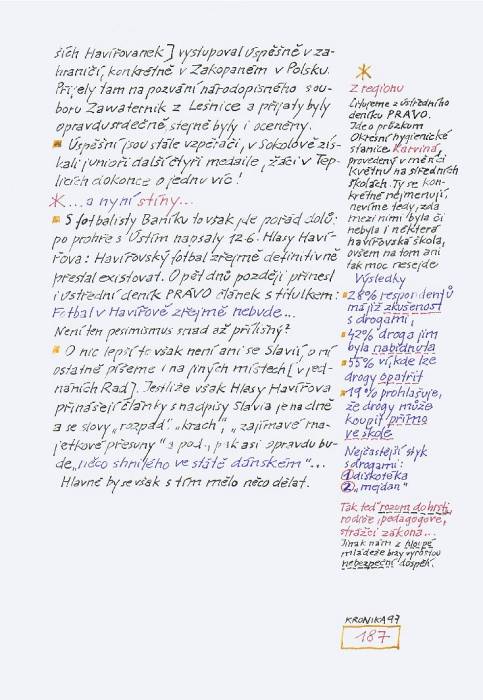 ších Havířovanek] vystupoval úspěšně v za-
hraničí, konkrétně v Zakopaném v Polsku.
Přijely tam na pozvání národopisného sou-
boru Zawaternik z Leśnice a přijaty byly
opravdu srdečně, stejně byly i oceněny.
Úspěšní jsou stále vzpěrači, v Sokolově zís-
kali junioři další čtyři medaile, žáci v Tep-
licích dokonce o jednu víc!
...a nyní stíny...
S fotbalisty Baníku to však jde pořád dolů:
po prohře s Ústím napsaly 12.6. Hlasy Haví-
řova: Havířovský fotbal zřejmě definitivně
přestal existovat. O pět dnů později přinesl
i ústřední deník PRÁVO článek s titulkem:
Fotbal v Havířově zřejmě nebude...
Není ten pesimismus snad až přílišný?
O nic lepší to však není ani se Slavií, o ní
ostatně píšeme i na jiných místech [v jed-
náních Rad]. Jestliže však Hlasy Havířova
přinášejí články s nadpisy Slavia je na dně
a se slovy „rozpad“, „krach“, „zajímavé ma-
jetkové přesuny“ a pod., pak asi opravdu bu-
de „něco shnilého ve státě dánském“...
Hlavně by se však s tím mělo něco dělat.
Z regionu
Citujeme z ústředního
deníku PRÁVO.
Jde o průzkum
Okresní hygienické
stanice Karviná,
provedený v měsíci
květnu na středních
školách. Ty se kon-
krétně nejmenují,
nevíme tedy, zda
mezi nimi byla či
nebyla i některá
havířovská škola,
ovšem na tom ani
tak moc nesejde
Výsledky
28% respondentů
má již zkušenost
s drogami,
42% droga jim
byla nabídnuta
55% ví, kde lze
drogy opatřit
19% prohlašuje,
že drogy může
koupit přímo
ve škole
Nejčastější styk
s drogami:
1 diskotéka
2 „mejdan“
Tak teď rozum do hrsti,
rodiče, pedagogové,
strážci zákona...
Jinak nám z hloupé
mládeže brzy vyrostou
nebezpeční dospěl.
KRONIKA 97
187